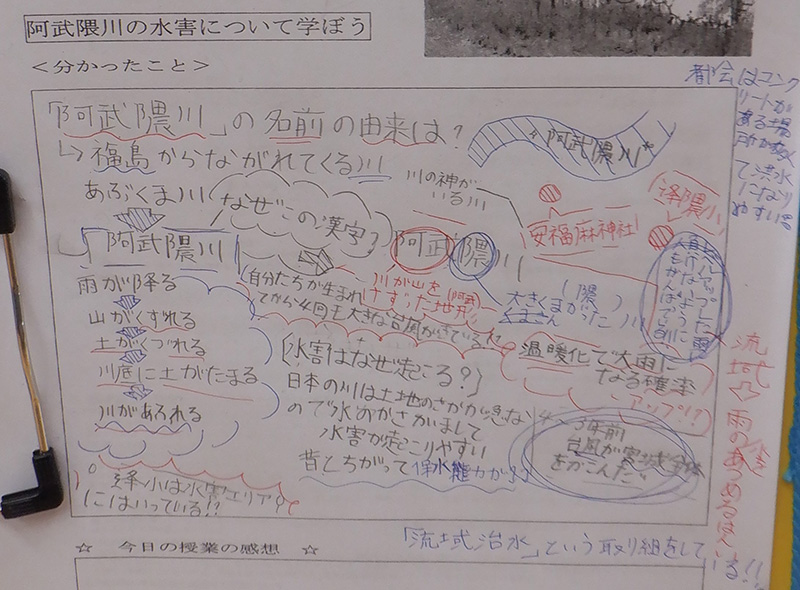 阿武隈川の水害について学ぼう
＜分かったこと＞
「阿武隈川」の名前の由来は？
↳福島からながれてくる川
"阿武隈川"
都会はコンク
リートが
ある場
所が多く
て洪水
になり
やすい
あぶくま川
なぜこの漢字？
川の神が
いる川
安福麻神社
逢隈川
「阿武隈川」
阿武隈川
雨が降る
山がくずれる
土がくずれる
川底に土がたまる
川があふれる
川が山を
けずった地形
(阿武)
(隈)
大きくまがった川
くまさん
自分たちが生まれ
てから4回も大きな台風がきている
〔水害はなぜ起こる？〕
日本の川は土地のさがが急な
ので水かさがまして
水害が起こりやすい
昔とちがって保水能力が
温暖化で大雨に
なる確率
アップ!?
年前
台風が宮城全体
をかこんだ
逢小は水害エリア
にはいっている!?
流域⇔雨のあつめるはんい
☆　今日の授業の感想　☆
「流域治水」という取り組をしている!!